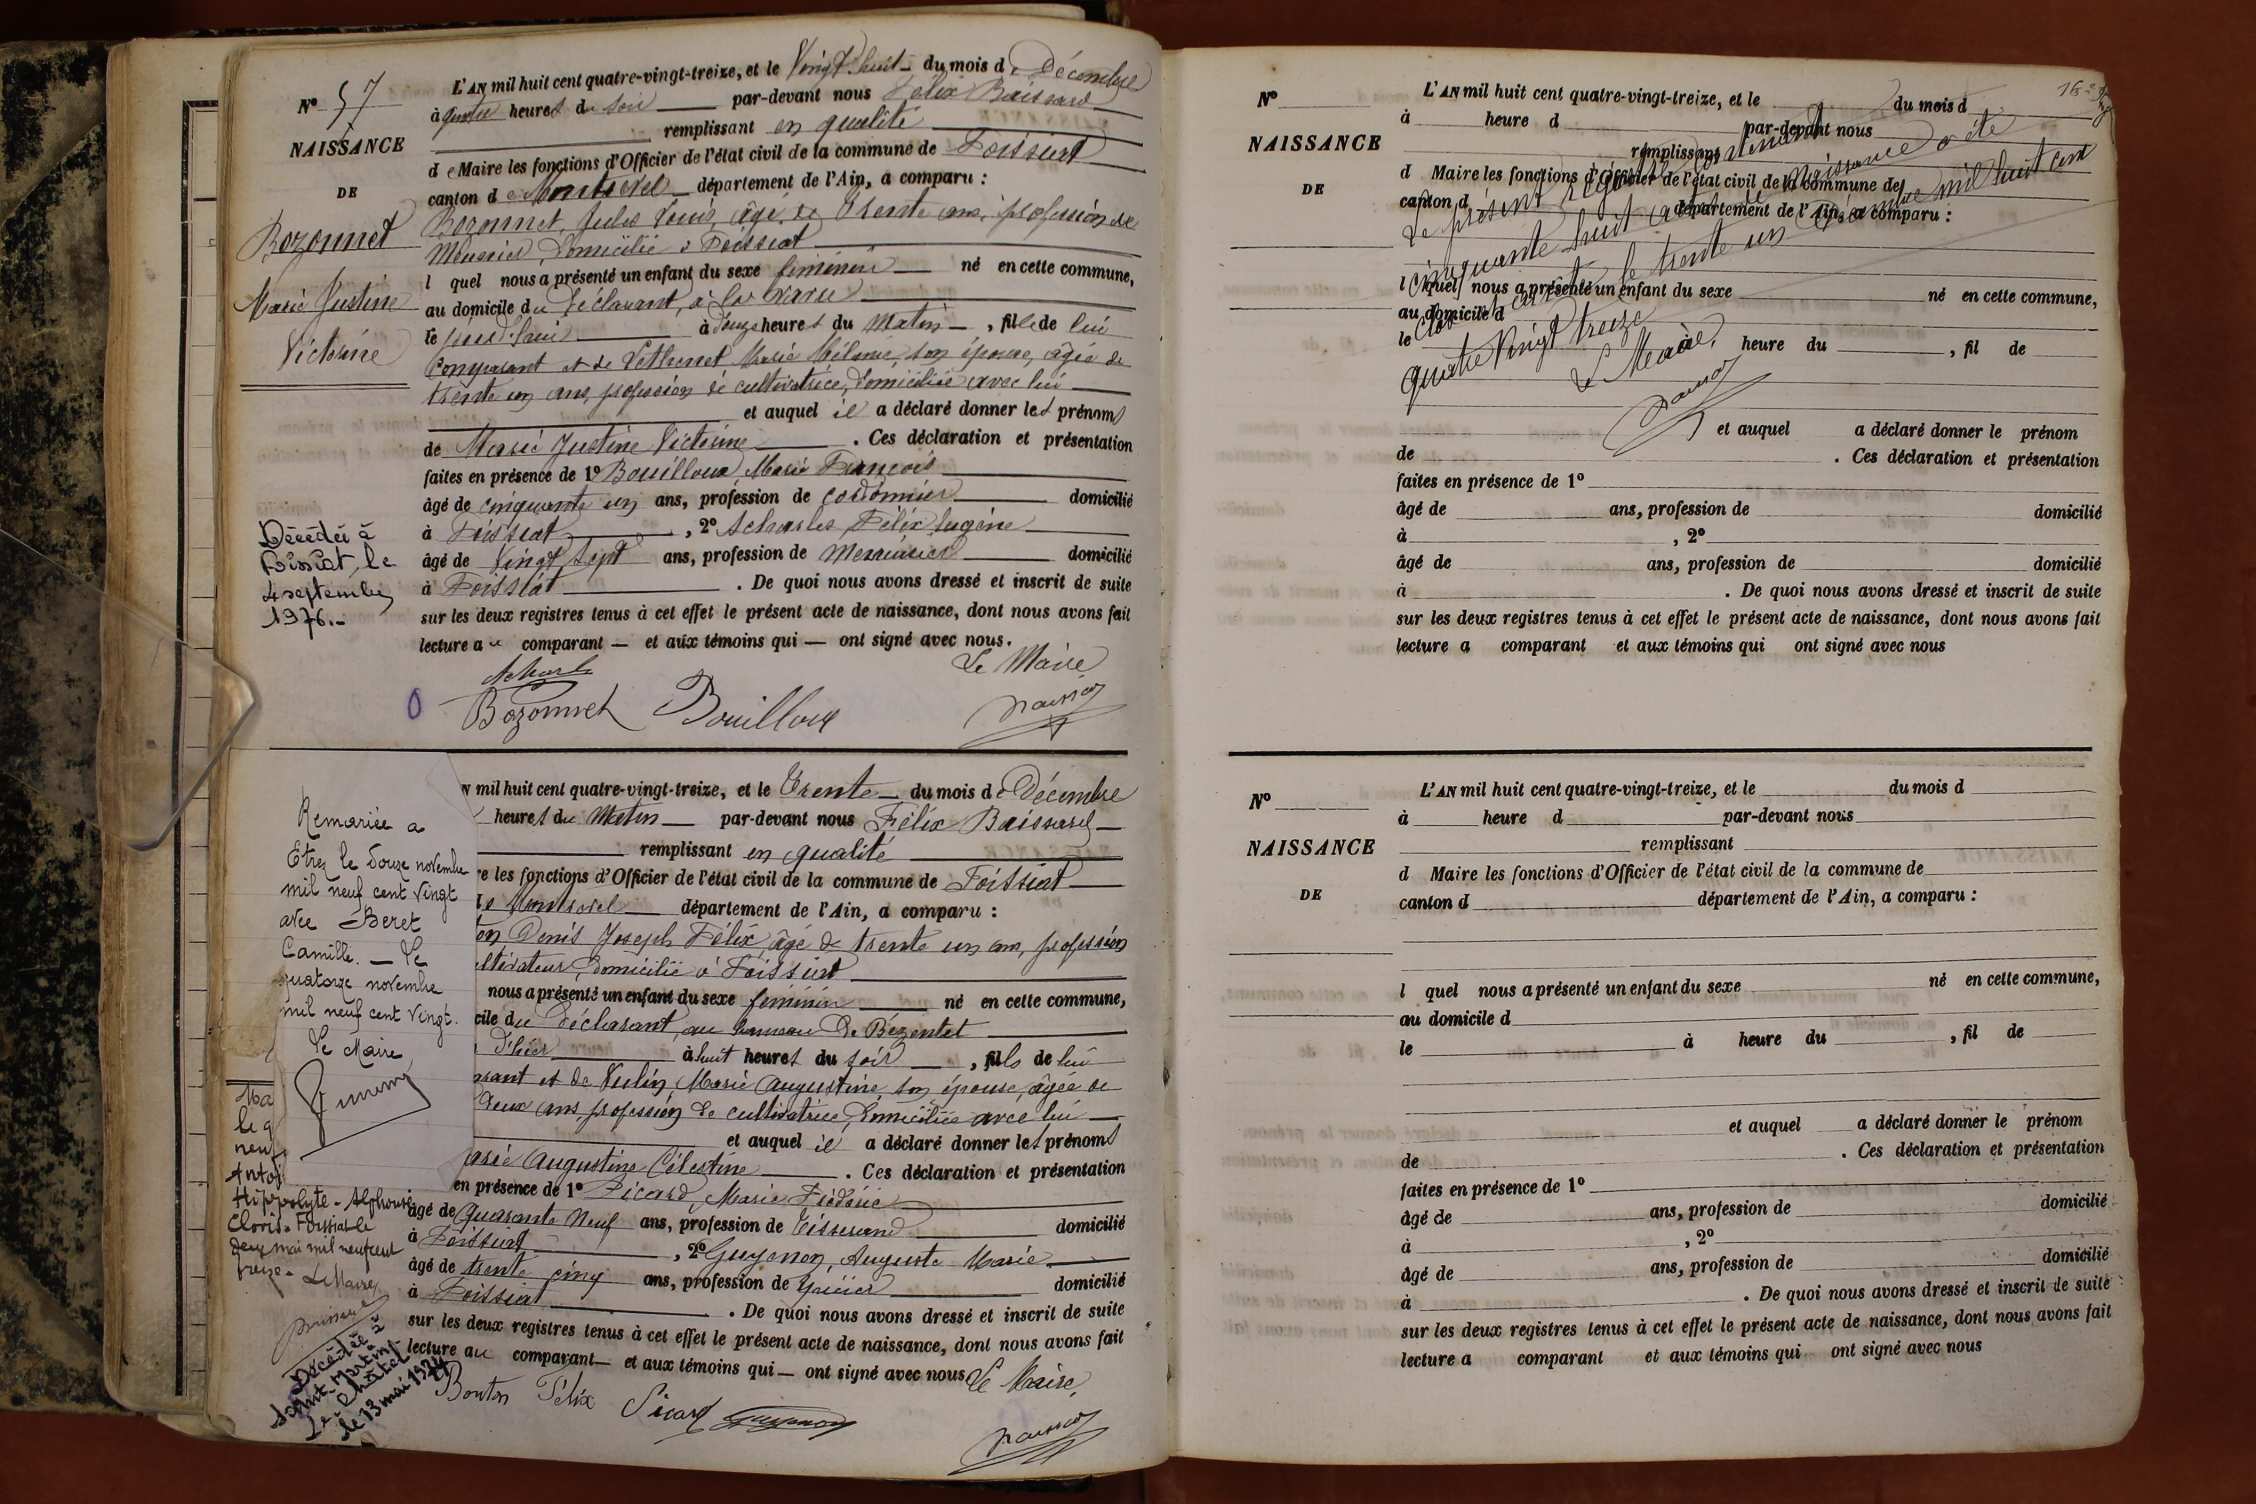 N° 57
NAISSANCE
DE
Bozonnet
Marie Justine
Victorine
Décédée à
Foissiat, le
4 septembre
1976.-
L'AN mil huit cent quatre-vingt-treize, et le Vingt huit du mois de Décembre
à quatre heures du soir par-devant nous Félix Baissard
remplissant en qualité
de Maire les fonctions d'Officier de l'état civil de la commune de Foissiat
canton de Montrevel département de l'Ain, a comparu :
Bozonnet, Jules Louis, âgé de trente ans, profession de
Menuisier, domicilié à Foissiat
l quel nous a présenté un enfant du sexe féminin né en cette commune,
au domicile du déclarant, à la
le jour d'hui à douze heures du Matin, fille de lui
Comparant et de Péthunet Marie Mélanie son épouse, âgée de
trente un ans, profession de cultivatrice, domiciliée avec lui
et auquel il a déclaré donner les prénoms
de Marie Justine Victorine. Ces déclaration et présentation
faites en présence de 1° Bouilloux, Marie François
âgé de cinquante un ans, profession de cordonnier domicilié
à Foissiat, 2° Acharles Félix Eugène
âgé de Vingt Sept ans, profession de Menuisier domicilié
à Foissiat. De quoi nous avons dressé et inscrit de suite
sur les deux registres tenus à cet effet le présent acte de naissance, dont nous avons fait
lecture au comparant — et aux témoins qui — ont signé avec nous.
Le Maire
Bozonnet Bouilloux
Remariée a
Etrez le douze novembre
mil neuf cent vingt
avec Beret
Camille. — Le
quatorze novembre
mil neuf cent vingt.
Le Maire
Ma
le q
neuf
Antoi
Hippolyte - Alphonse
Clovis - Foissiat le
deux mai mil neuf cent
treize - Le Maire,
Décédée à
Saint-Martin-
Le-Châtel
le 13 mai 1974
mil huit cent quatre-vingt-treize, et le Trente du mois de Décembre
heures du Matin par-devant nous Félix Baissard
remplissant en qualité
re les fonctions d'Officier de l'état civil de la commune de Foissiat
de Montrevel département de l'Ain, a comparu :
on, Denis Joseph Félix âgé de trente un ans, profession
ultivateur, domicilié à Foissiat
nous a présenté un enfant du sexe féminin né en cette commune,
cile du déclarant, au hameau de Bézentet
d'hier à huit heures du soir, fils de lui
arant et de Vulin, Marie Augustine, son épouse, âgée de
deux ans, profession de cultivatrice, domiciliée avec lui
et auquel il a déclaré donner les prénoms
arie Augustine Célestine. Ces déclaration et présentation
en présence de 1° Picard, Marie Frédéric
âgé de Quarante Neuf ans, profession de Tisserand domicilié
à Foissiat, 2° Guyenon, Auguste Marie
âgé de trente cinq ans, profession de épicier domicilié
à Foissiat. De quoi nous avons dressé et inscrit de suite
sur les deux registres tenus à cet effet le présent acte de naissance, dont nous avons fait
lecture au comparant — et aux témoins qui — ont signé avec nous
Le Maire,
Bonton Félix Picard Guyenon
N°
NAISSANCE
DE
L'AN mil huit cent quatre-vingt-treize, et le du mois d
à heure d par-devant nous
remplissant
d Maire les fonctions d'Officier de l'état civil de la commune de
canton d département de l'Ain, a comparu :
l quel nous a présenté un enfant du sexe né en cette commune,
au domicile d
le heure du , fil de
Le présent registre contenant
cinquante huit actes de naissance a été
clos et arrêté le trente un Décembre mil huit cent
quatre Vingt treize
Le Maire,
et auquel a déclaré donner le prénom
de . Ces déclaration et présentation
faites en présence de 1°
âgé de ans, profession de domicilié
à , 2°
âgé de ans, profession de domicilié
à . De quoi nous avons dressé et inscrit de suite
sur les deux registres tenus à cet effet le présent acte de naissance, dont nous avons fait
lecture a comparant et aux témoins qui ont signé avec nous
N°
NAISSANCE
DE
L'AN mil huit cent quatre-vingt-treize, et le du mois d
à heure d par-devant nous
remplissant
d Maire les fonctions d'Officier de l'état civil de la commune de
canton d département de l'Ain, a comparu :
l quel nous a présenté un enfant du sexe né en cette commune,
au domicile d
le à heure du , fil de
et auquel a déclaré donner le prénom
de . Ces déclaration et présentation
faites en présence de 1°
âgé de ans, profession de domicilié
à , 2°
âgé de ans, profession de domicilié
à . De quoi nous avons dressé et inscrit de suite
sur les deux registres tenus à cet effet le présent acte de naissance, dont nous avons fait
lecture a comparant et aux témoins qui ont signé avec nous